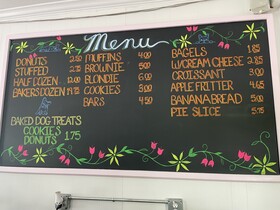 Menu
DONUTS 2.50
STUFFED 2.75
HALF DOZEN 12.00
BAKERS DOZEN 19.75
BAKED DOG TREATS
COOKIES
DONUTS 1.75
MUFFINS 4.00
BROWNIE 5.00
BLONDIE 6.00
COOKIES 3.00
BARS 4.50
BAGELS 1.85
W/CREAM CHEESE 2.85
CROISSANT 3.00
APPLE FRITTER 4.65
BANANA BREAD 5.00
PIE SLICE 5.75